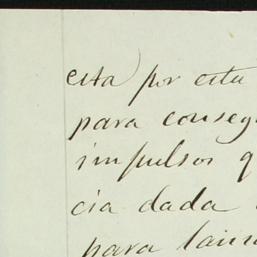 esta por esta
para conseg
impulsos q
cia dada
para